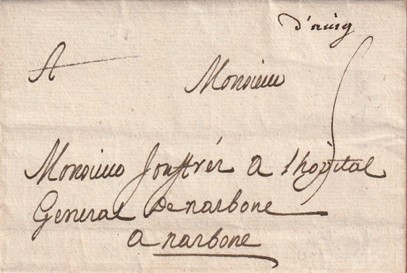 d'nuig
A Monsieur
Monsieur Jouffrer a l'hôpital
General De narbone
a narbone